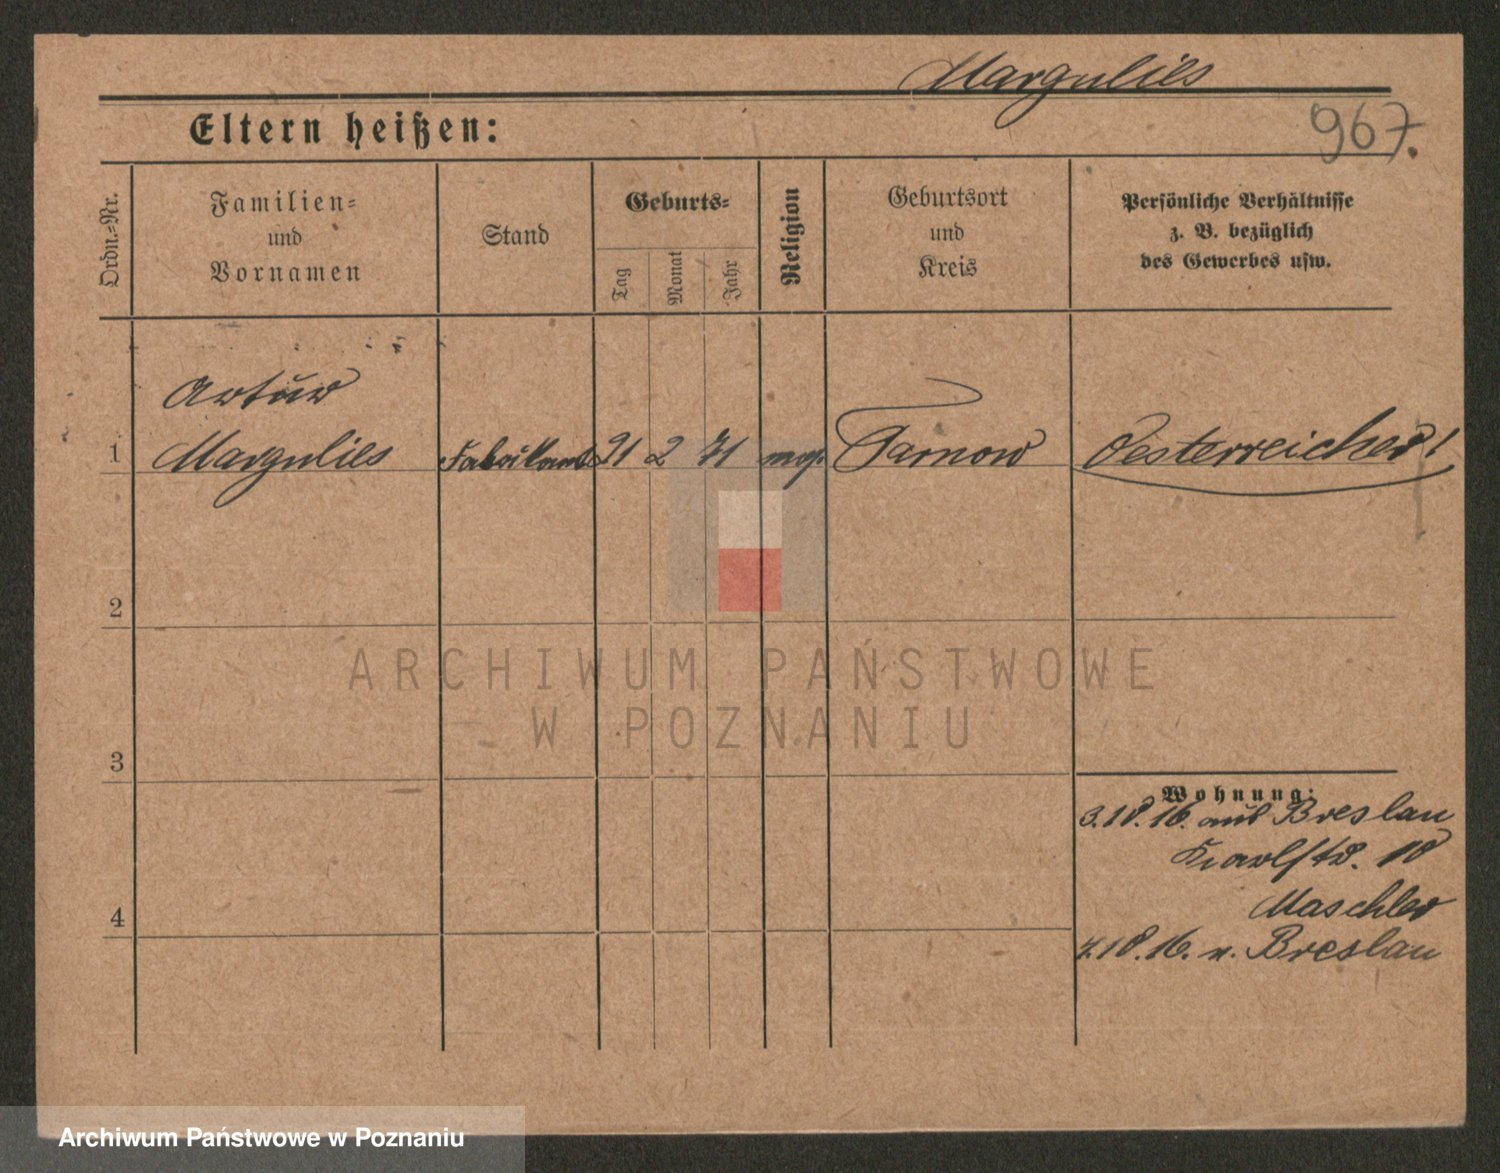 Margulies
967.
Eltern heißen:
Ordn.=Nr.
Familien=
und
Vornamen
Stand
Geburts=
Tag
Monat
Jahr
Religion
Geburtsort
und
Kreis
Persönliche Verhältnisse
z. B. bezüglich
des Gewerbes usw.
Artur
1 Margulies Fabrikant 21 2 71 mos. Tarnow Oesterreicher!
2
ARCHIWUM PAŃSTWOWE
W POZNANIU
3
Wohnung:
3.10.16. aus Breslau
Karlstr. 10
Maschler
4
7.10.16. n. Breslau
Archiwum Państwowe w Poznaniu